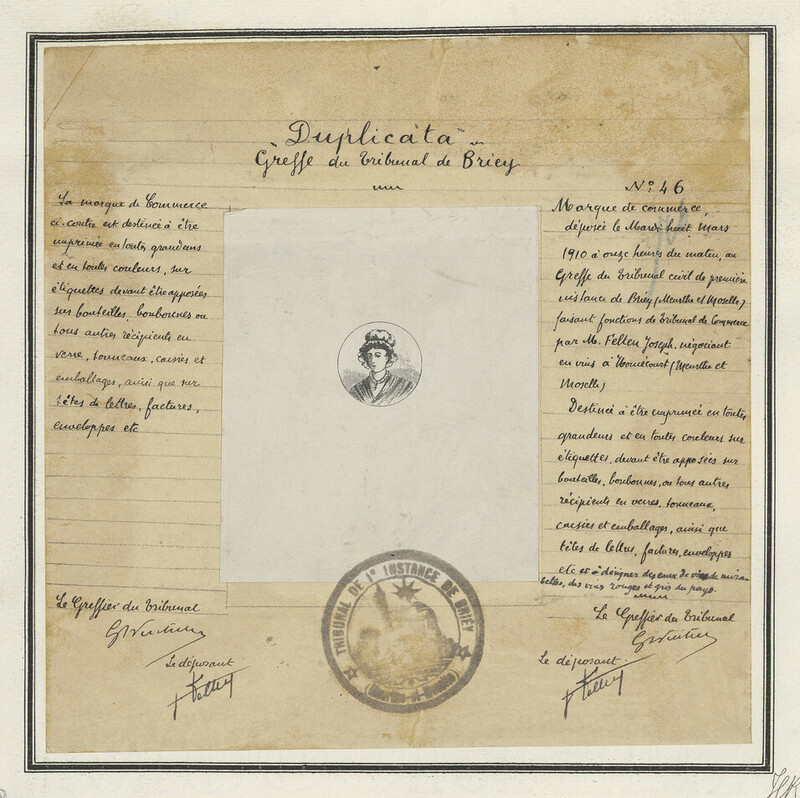 "Duplicata"
Greffe du Tribunal de Briey
La marque de Commerce
ci-contre est destinée à être
imprimée en toutes grandeurs
et en toutes couleurs, sur
étiquettes devant être apposées
sur bouteilles, bonbonnes ou
tous autres récipients en
verre, tonneaux, caisses et
emballages, ainsi que sur
têtes de lettres, factures,
enveloppes etc
Le Greffier du Tribunal
Le déposant
N° 46
Marque de commerce,
déposée le Mardi huit Mars
1910 à onze heures du matin, au
Greffe du Tribunal civil de première
instance de Briey (Meurthe et Moselle)
faisant fonctions de Tribunal de Commerce
par M. Felten Joseph, négociant
en vins à Homécourt (Meurthe et
Moselle)
Destinée à être imprimée en toutes
grandeurs et en toutes couleurs sur
étiquettes, devant être apposées sur
bouteilles, bonbonnes, ou tous autres
récipients en verres, tonneaux,
caisses et emballages, ainsi que
têtes de lettres, factures, enveloppes
etc et à désigner des eaux de vie de mira-
belles, des vins rouges et gris du pays.
Le Greffier du Tribunal
Le déposant.
Felten
TRIBUNAL DE 1e INSTANCE DE BRIEY
(Meurthe-et-Moselle)